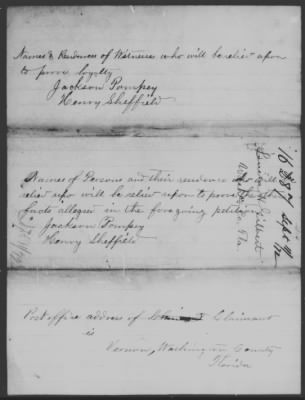 Names & Residences of Witnesses who will be reliet upon
to prove loyalty
Jackson Pompey
Henry Sheffield
Names of Persons and their residence who will
reliet upo will be reliet upon to prove the
facts alleged in the foregoing petition
Jackson Pompey
Henry Sheffield
Post office address of Claimant
is
Vernon, Washington County
Florida
16587 Sept
Gilbert
Fla.